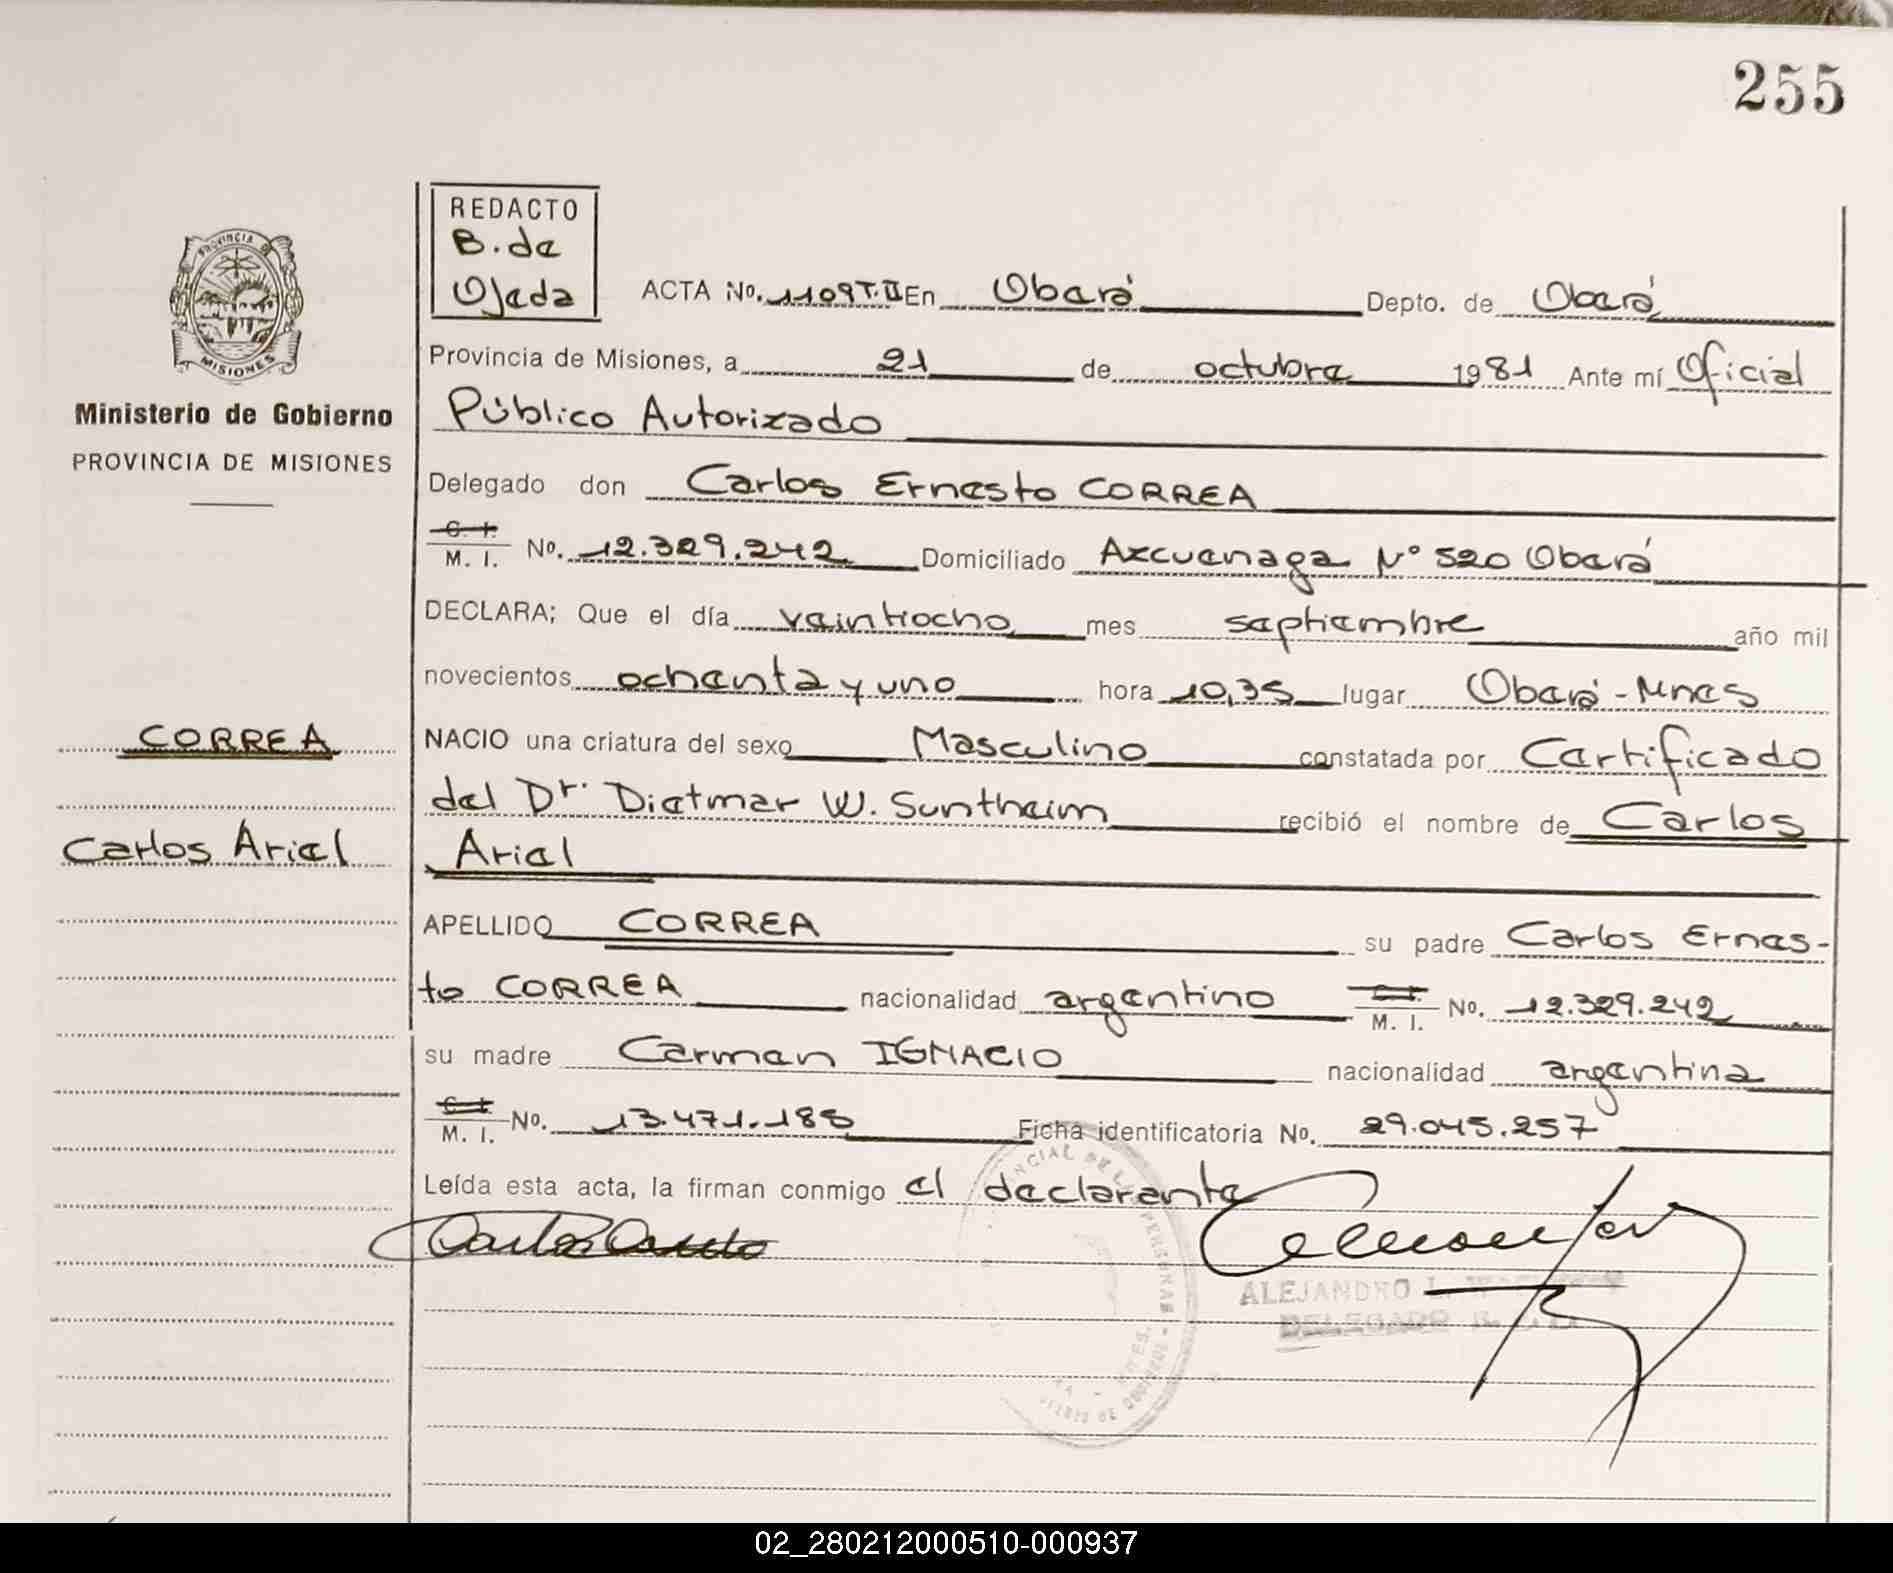 255
REDACTO
B. de
Ojeda
ACTA No. 1109 T. II En Oberá Depto. de Oberá
Provincia de Misiones, a 21 de octubre 1981 Ante mí Oficial
Público Autorizado
Delegado don Carlos Ernesto CORREA
C. I.
M. I. No. 12.329.242 Domiciliado Azcuenaga N° 520 Oberá
DECLARA; Que el día veintiocho mes septiembre año mil
novecientos ochenta y uno hora 10,35 lugar Oberá - Mnes
NACIO una criatura del sexo Masculino constatada por Certificado
del Dr. Dietmar W. Suntheim recibió el nombre de Carlos
Ariel
APELLIDO CORREA su padre Carlos Ernes-
to CORREA nacionalidad argentino M. I. No. 12.329.242
su madre Carmen IGNACIO nacionalidad argentina
C. I.
M. I. No. 13.471.188 Ficha identificatoria No. 29.045.257
Leída esta acta, la firman conmigo el declarante
ALEJANDRO L.
DELEGADO
PROVINCIA DE
MISIONES
Ministerio de Gobierno
PROVINCIA DE MISIONES
CORREA
Carlos Ariel
02_280212000510-000937